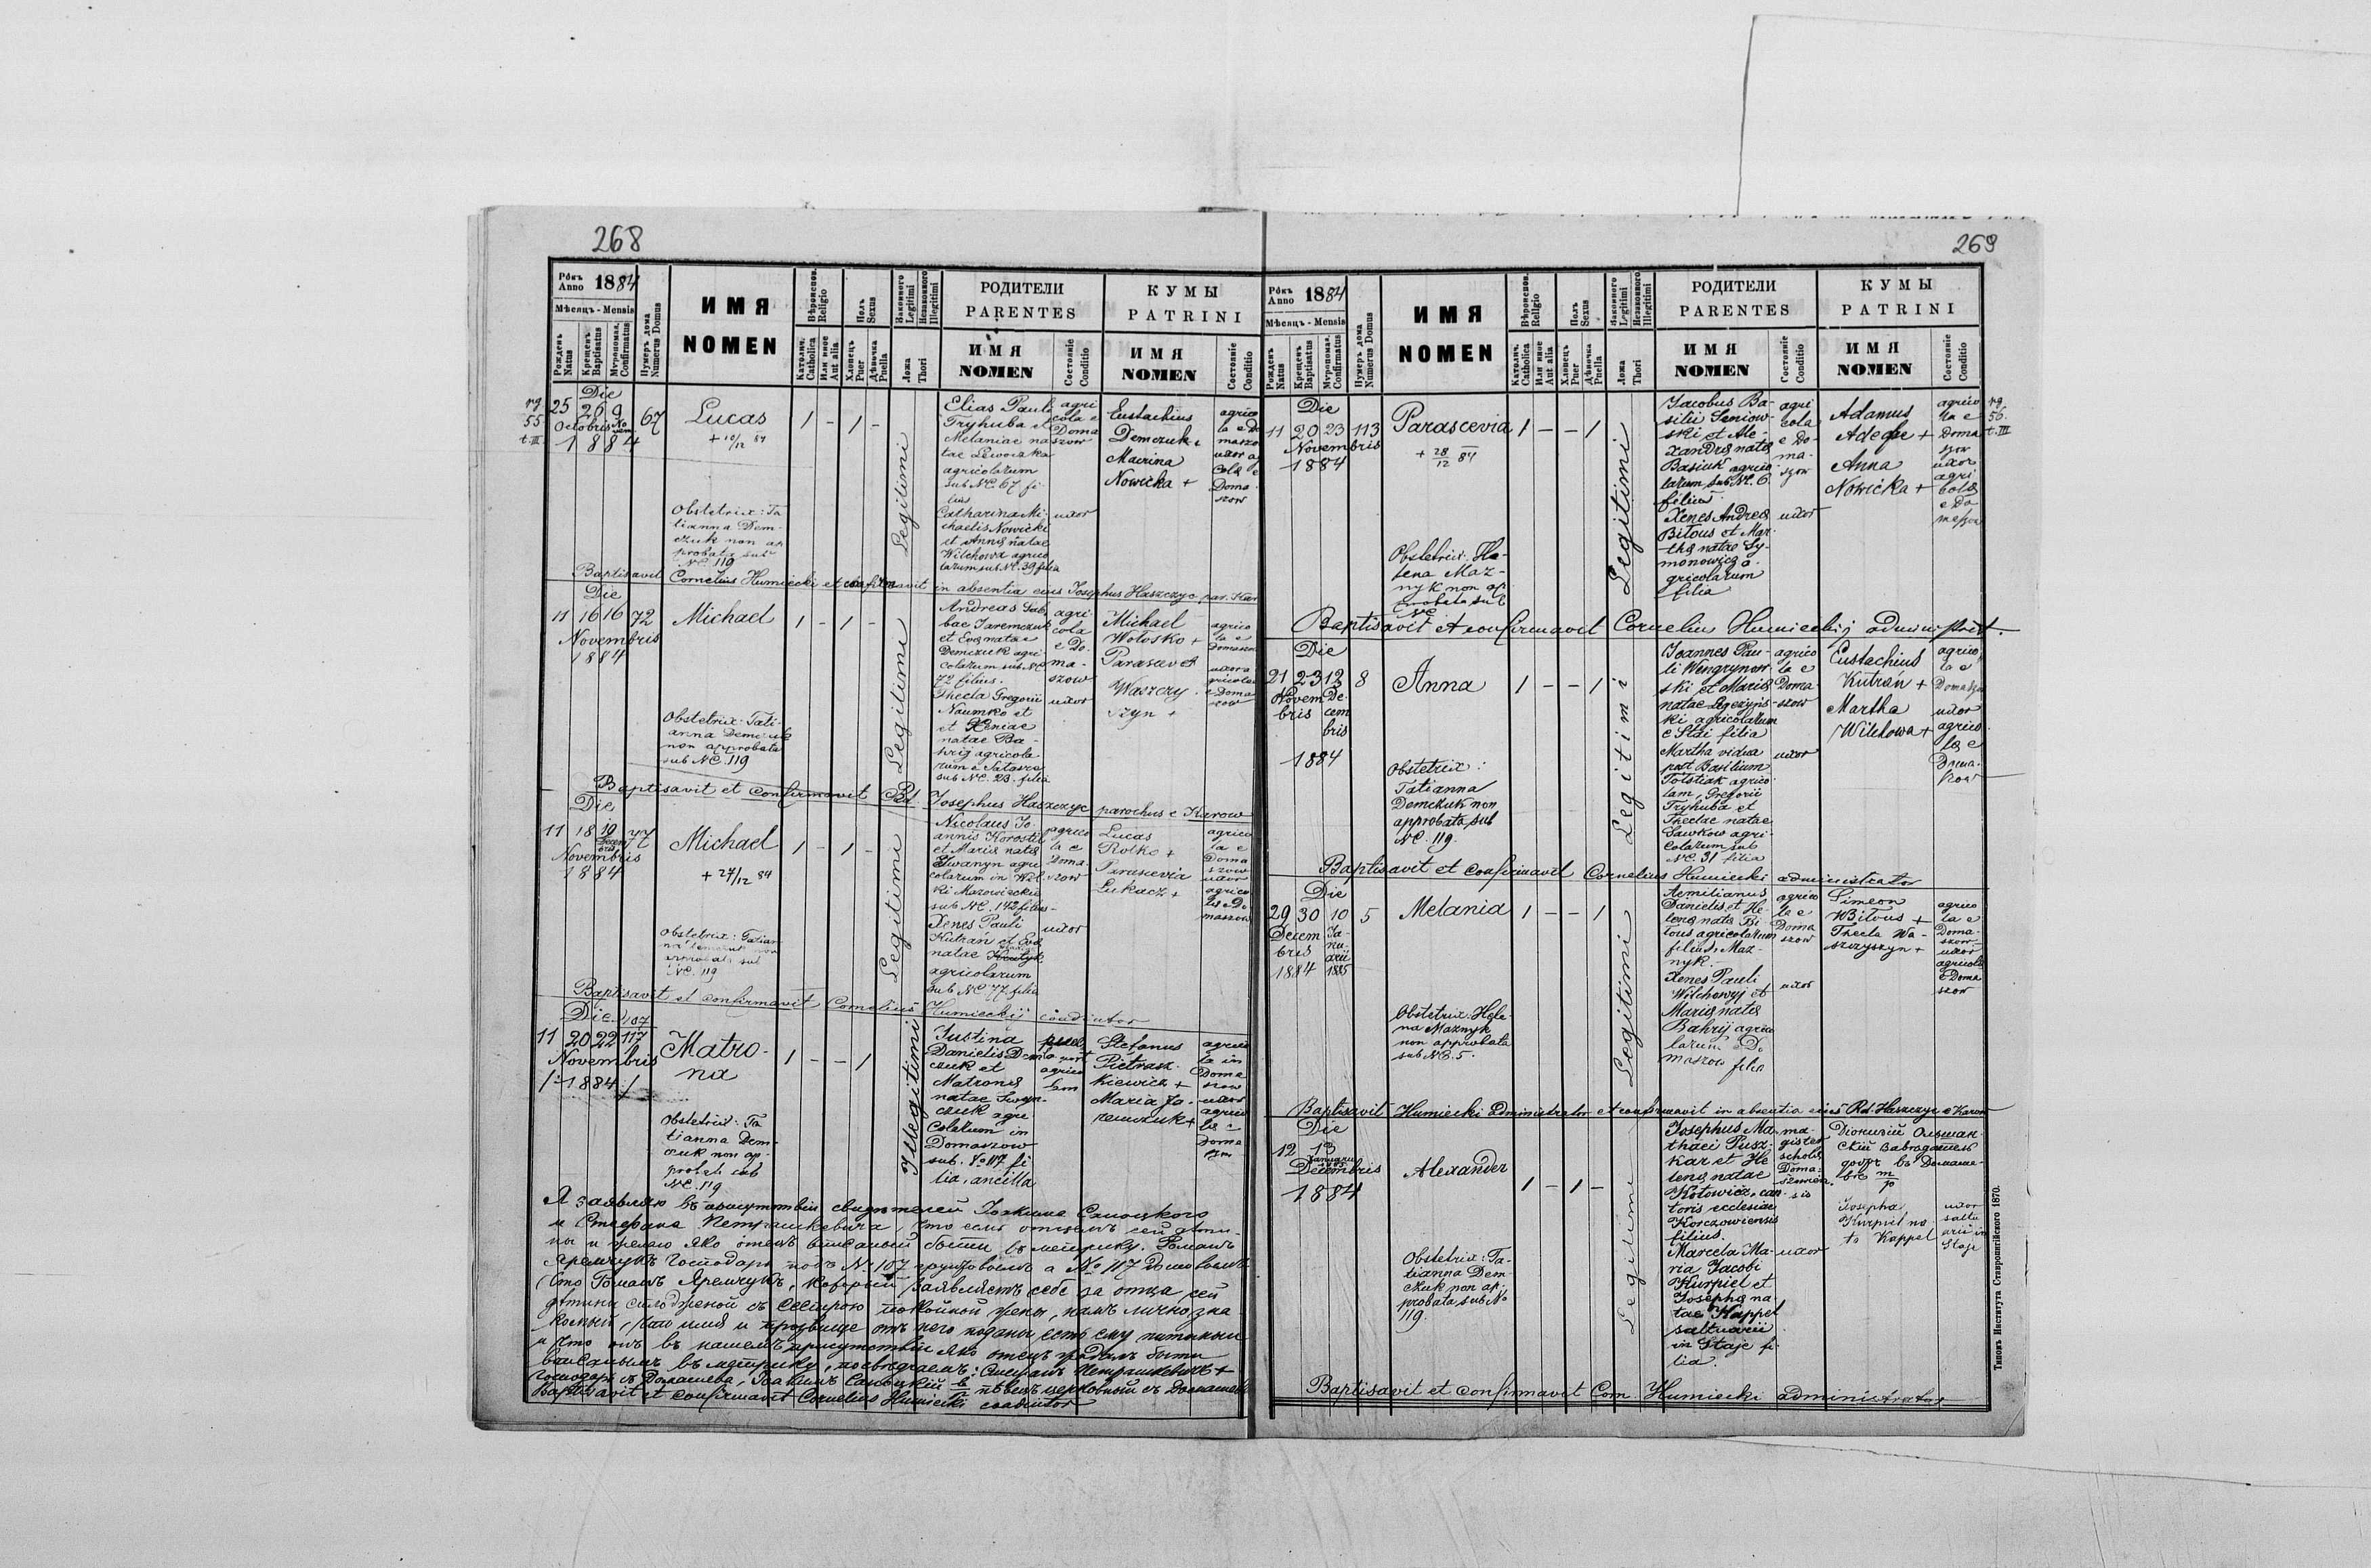 268
Рокъ Anno 1884
Мѣсяцъ - Mensis
Рожденъ Natus
Крещенъ Baptisatus
Муропомаз. Confirmatus
Нумеръ дома Numerus Domus
ИМЯ
NOMEN
Вѣроиспов. Religio
Католич. Catholica
Или иное Aut alia
Полъ Sexus
Хлопецъ Puer
Дѣвочка Puella
Законного Legitimi
Незаконного Illegitimi
Ложа Thori
РОДИТЕЛИ
PARENTES
ИМЯ
NOMEN
Состояніе Conditio
КУМЫ
PATRINI
ИМЯ
NOMEN
Состояніе Conditio
pg
55
t. III
Die
25 26 9 67
Octobris
1884
Lucas
+ 10/12 84
1 - 1 -
Legitimi
Elias Pauli
Tryhuba et
Melaniae na
tae Lewoczka
agricolarum
sub NC. 67 fi
lius
Catharina Mi-
chaelis Nowicki
et Annae natae
Wilchowa agrico
larum sub NC. 39 filia
agri
cola e
Doma
szow
uxor
Eustachius
Demczuk
Maerina
Nowicka +
Doma
szow
Obstetrix: Ta
tianna Dem-
czuk non ap
probata sub
NC 119
Baptisavit Cornelius Humiecki et confirmavit in absentia eius Josephus Haszczyc par. Kar
Die
11 16 16 72
Novembris
1884
Michael
1 - 1 -
Legitimi
Andreas
Jaremczuk
et Evae natae
Demczuk agri
colarum sub NC
72 filius.
Thecla Gregorii
Naumko et
et Xeniae
natae Ba-
hrij agricola
rum e
sub NC. 23. filia
agri
cola
e Do-
ma-
szow
uxor
Michael
Wolosko +
Parascev
Waszczy
szyn +
Obstetrix: Tati-
anna Demczuk
non approbata
sub NC. 119
Baptisavit et confirmavit Rd. Josephus Haszczyc parochus e Karow
Die
11 18 19 77
Decem
bris
Novembris
1884
Michael
+ 27/12 84
1 - 1 -
Legitimi
Nicolaus Jo-
annis Korostil
et Mariae natae
Iwanyn agri
colarum in Wol
ki Mazowieckie
sub NC. 142 filius-
Xenes Pauli
Kutrań et Evae
natae
agricolarum
sub NC 77 filia
agrico
la e
Doma-
szow
uxor
Lucas
Rotko +
Parascevia
Lukacz +
agrico
la e
Doma
szow
uxor
agrico
lae e Do
maszow
Obstetrix: Tatian-
na Demczuk non
approbata sub
NC. 119
Baptisavit et confirmavit Cornelius Humiecki coadiutor
Die 107
11 20 22 117
Novembris
/: 1884 :/
Matro-
na
1 - - 1
Illegitimi
Justina
Danielis Dem
czuk et
Matronae
natae
czuk agri
colarum in
Domaszow
sub. No 117 fi
lia, ancilla
Stefanus
Pietrasz-
kiewicz +
Maria Ja-
remczuk +
agrico
la in
Doma
szow
uxor
agrico
lae e
Doma
Obstetrix: Ta
tianna Dem-
czuk non ap-
probata sub
NC. 119
Я заявляю въ присутствіи свидѣтелей Іоакима Саноцкого
и Стефана Петрашкевича, что есмь отцемъ сей дѣти-
ны и желаю яко отецъ вписаный быти въ метрику. Романъ
Яремчукъ господаръ подъ N. 107 грунтовымъ а No 117 домовымъ
Что Романъ Яремчукъ, который заявляетъ себе за отца сей
дѣтины сплодженой съ сестрою покойной жены, намъ лично зна-
комый, что имя и прозвище отъ него поданы есть ему питомыи
и что онъ въ нашемъ присутствіи яко отецъ жадалъ быти
вписанымъ въ метрику, посвѣдчаемъ: Стефанъ Петрашкевичъ +
господаръ съ Домашева, Іоакимъ Саноцкій пѣвецъ церковный съ Домашева
Baptisavit et confirmavit Cornelius Humiecki coadiutor
269
Рокъ Anno 1884
Мѣсяцъ - Mensis
Рожденъ Natus
Крещенъ Baptisatus
Муропомаз. Confirmatus
Нумеръ дома Numerus Domus
ИМЯ
NOMEN
Вѣроиспов. Religio
Католич. Catholica
Или иное Aut alia
Полъ Sexus
Хлопецъ Puer
Дѣвочка Puella
Законного Legitimi
Незаконного Illegitimi
Ложа Thori
РОДИТЕЛИ
PARENTES
ИМЯ
NOMEN
Состояніе Conditio
КУМЫ
PATRINI
ИМЯ
NOMEN
Состояніе Conditio
pg
56.
t. III
Die
11 20 23 113
Novembris
1884
Parascevia
+ 28/12 84
1 - - 1
Legitimi
Jacobus Ba-
silii Seniow-
ski et Ale-
xandrae natae
Basiuk agrico
larum sub NC. 6
filius.
Xenes Andreae
Bitous et Mar-
thae natae Sy-
monowicz a
gricolarum
filia
agri
cola
e Do-
ma-
szow
uxor
Adamus
Anna
Nowicka +
agrico
la e
Doma
szow
uxor
agri
colae
e Do
Obstetrix: He-
lena Maz-
nyk non ap
probata sub
NC
Baptisavit et confirmavit Cornelius Humieckij administ.
Die
21 23 12 8
Novem De-
bris cem
bris
1884
Anna
1 - - 1
Legitimi
Joannes Pau-
li Wengrynow-
ski et Mariae
natae
ki agricolarum
e Stai filia
Martha vidua
post Basilium
Tolstiak agrico-
lam, Gregorii
Tryhuba et
Theclae natae
Sawkow agri-
colarum sub
NC. 31 filia
agrico
la e
Doma-
szow
uxor
Eustachius
Kutrań +
Martha
Wilchowa +
agrico
la e
uxor
agrico-
lae e
Doma-
szow
Obstetrix:
Tatianna
Demczuk non
approbata sub
NC. 119.
Baptisavit et confirmavit Cornelius Humiecki administrator
Die
29 30 10 5
Decem Ja-
bris nu-
arii
1884 1885
Melania
1 - - 1
Legitimi
Aemilianus
Danielis et He-
lenae natae Bi-
tous agricolarum
filius, Maz-
nyk.-
Xenes Pauli
Wilchowyj et
Mariae natae
Bahrij agrico
larum e Do
maszow filia
agrico
la e
Doma
szow
uxor
Simeon
Bitous +
Thecla Wa-
szczyszyn +
agrico
la e
Doma-
szow-
uxor
agricolae
e Doma
szow
Obstetrix: Hele-
na Maznyk
non approbata
sub NC. 5.
Baptisavit Humiecki administrator et confirmavit in absentia eius Rd. Haszczyc e Karow
Die
12 13
Januarii
Decembris
1884
Alexander
1 - 1 -
Legitimi
Josephus Ma-
thaei Pusz-
kar et He
lenae natae
Kotowicz, can-
toris ecclesiae
Korczowiensis
filius.
Marcela Ma-
ria Jacobi
Kurpiel et
Josepha na
tae Kappel
saltuarii
in Staje fi-
lia.
ma-
gister
scholae
Doma-
szovien
sis
uxor
Діонизій Ольшан-
скій завѣдатель
въ Домаше-
вѣ m/p
Josepha
Kurpiel na
ta Kappel
uxor
saltu
arii in
Staje
Obstetrix: Ta-
tianna Dem-
czuk non ap-
probata, sub No
119.
Baptisavit et confirmavit Corn. Humiecki administrator
Типомъ Института Ставропигійского 1870.